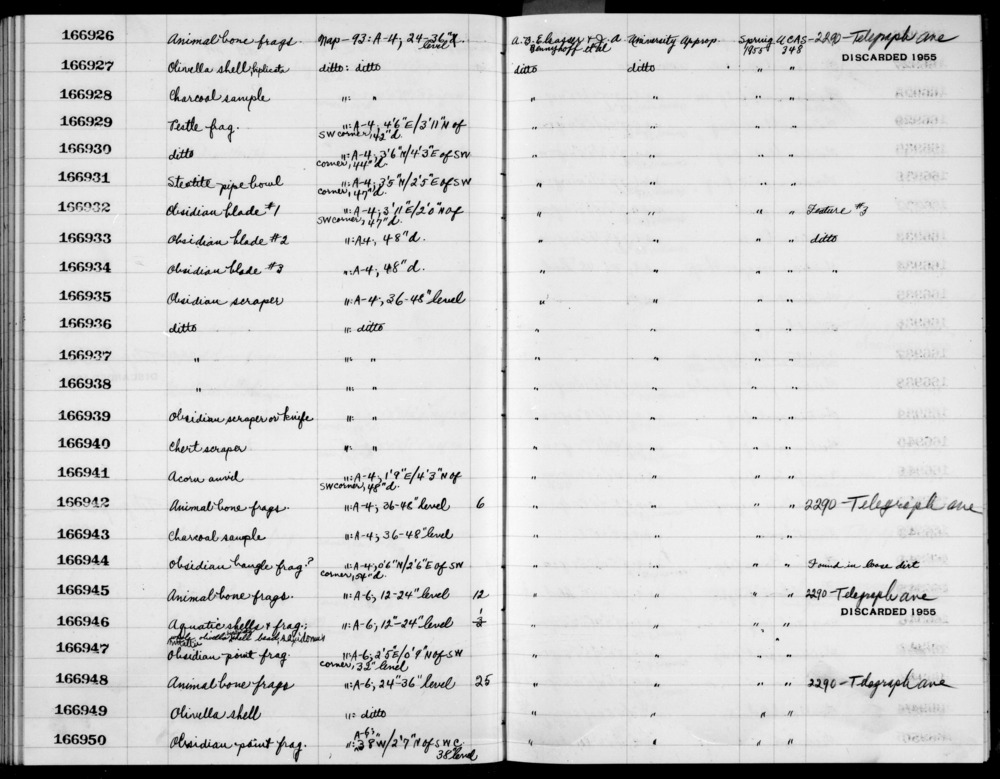 166926 Animal bone frags. Nap-93: A-4; 24-36" level A. B. Elsasser & J. A. Bennyhoff et al University Approp. Spring 1955 UCAS 348 2290-Telegraph Ave
166927 Olivella shell, ditto: ditto ditto ditto " " DISCARDED 1955
166928 Charcoal sample ": " " " " "
166929 Pestle frag. ": A-4; 4'6"E/3'11"N of SW corner, 42"d. " " " "
166930 ditto ": A-4; 3'6"N/4'3"E of SW corner, 44"d. " " " "
166931 Steatite pipe bowl ": A-4; 3'5"N/2'5"E of SW corner, 47"d. " " " "
166932 Obsidian blade #1 ": A-4; 3'11"E/2'0"N of SW corner, 47"d. " " " " Feature #3
166933 Obsidian blade #2 ": A4; 48"d. " " " " ditto
166934 Obsidian blade #3 ": A-4; 48"d. " " " " "
166935 Obsidian scraper ": A-4; 36-48" level " " " "
166936 ditto ": ditto " " " "
166937 " ": " " " " "
166938 " ": " " " " "
166939 Obsidian scraper or knife ": " " " " "
166940 Chert scraper ": " " " " "
166941 Acorn anvil ": A-4; 1'9"E/4'3"N of SW corner, 48"d. " " " "
166942 Animal bone frags. ": A-4; 36-48" level 6 " " " " 2290-Telegraph Ave
166943 Charcoal sample ": A-4; 36-48" level " " " "
166944 Obsidian bangle frag? ": A-4; 0'6"N/2'6"E of SW corner, 54"d. " " " " Found in loose dirt
166945 Animal bone frags. ": A-6; 12-24" level 12 " " " " 2290-Telegraph Ave
DISCARDED 1955
166946 Aquatic shells & frag.; ": A-6; 12"-24" level " " " "
166947 Obsidian point frag. ": A-6; 2'5"E/0'9"N of SW corner, 32" level " " " "
166948 Animal bone frags ": A-6; 24"-36" level 25 " " " " 2290-Telegraph Ave
166949 Olivella shell ": ditto " " " "
166950 Obsidian point frag. ": A-6; 3'8"W/2'7"N of SW C. 38" level " " " "